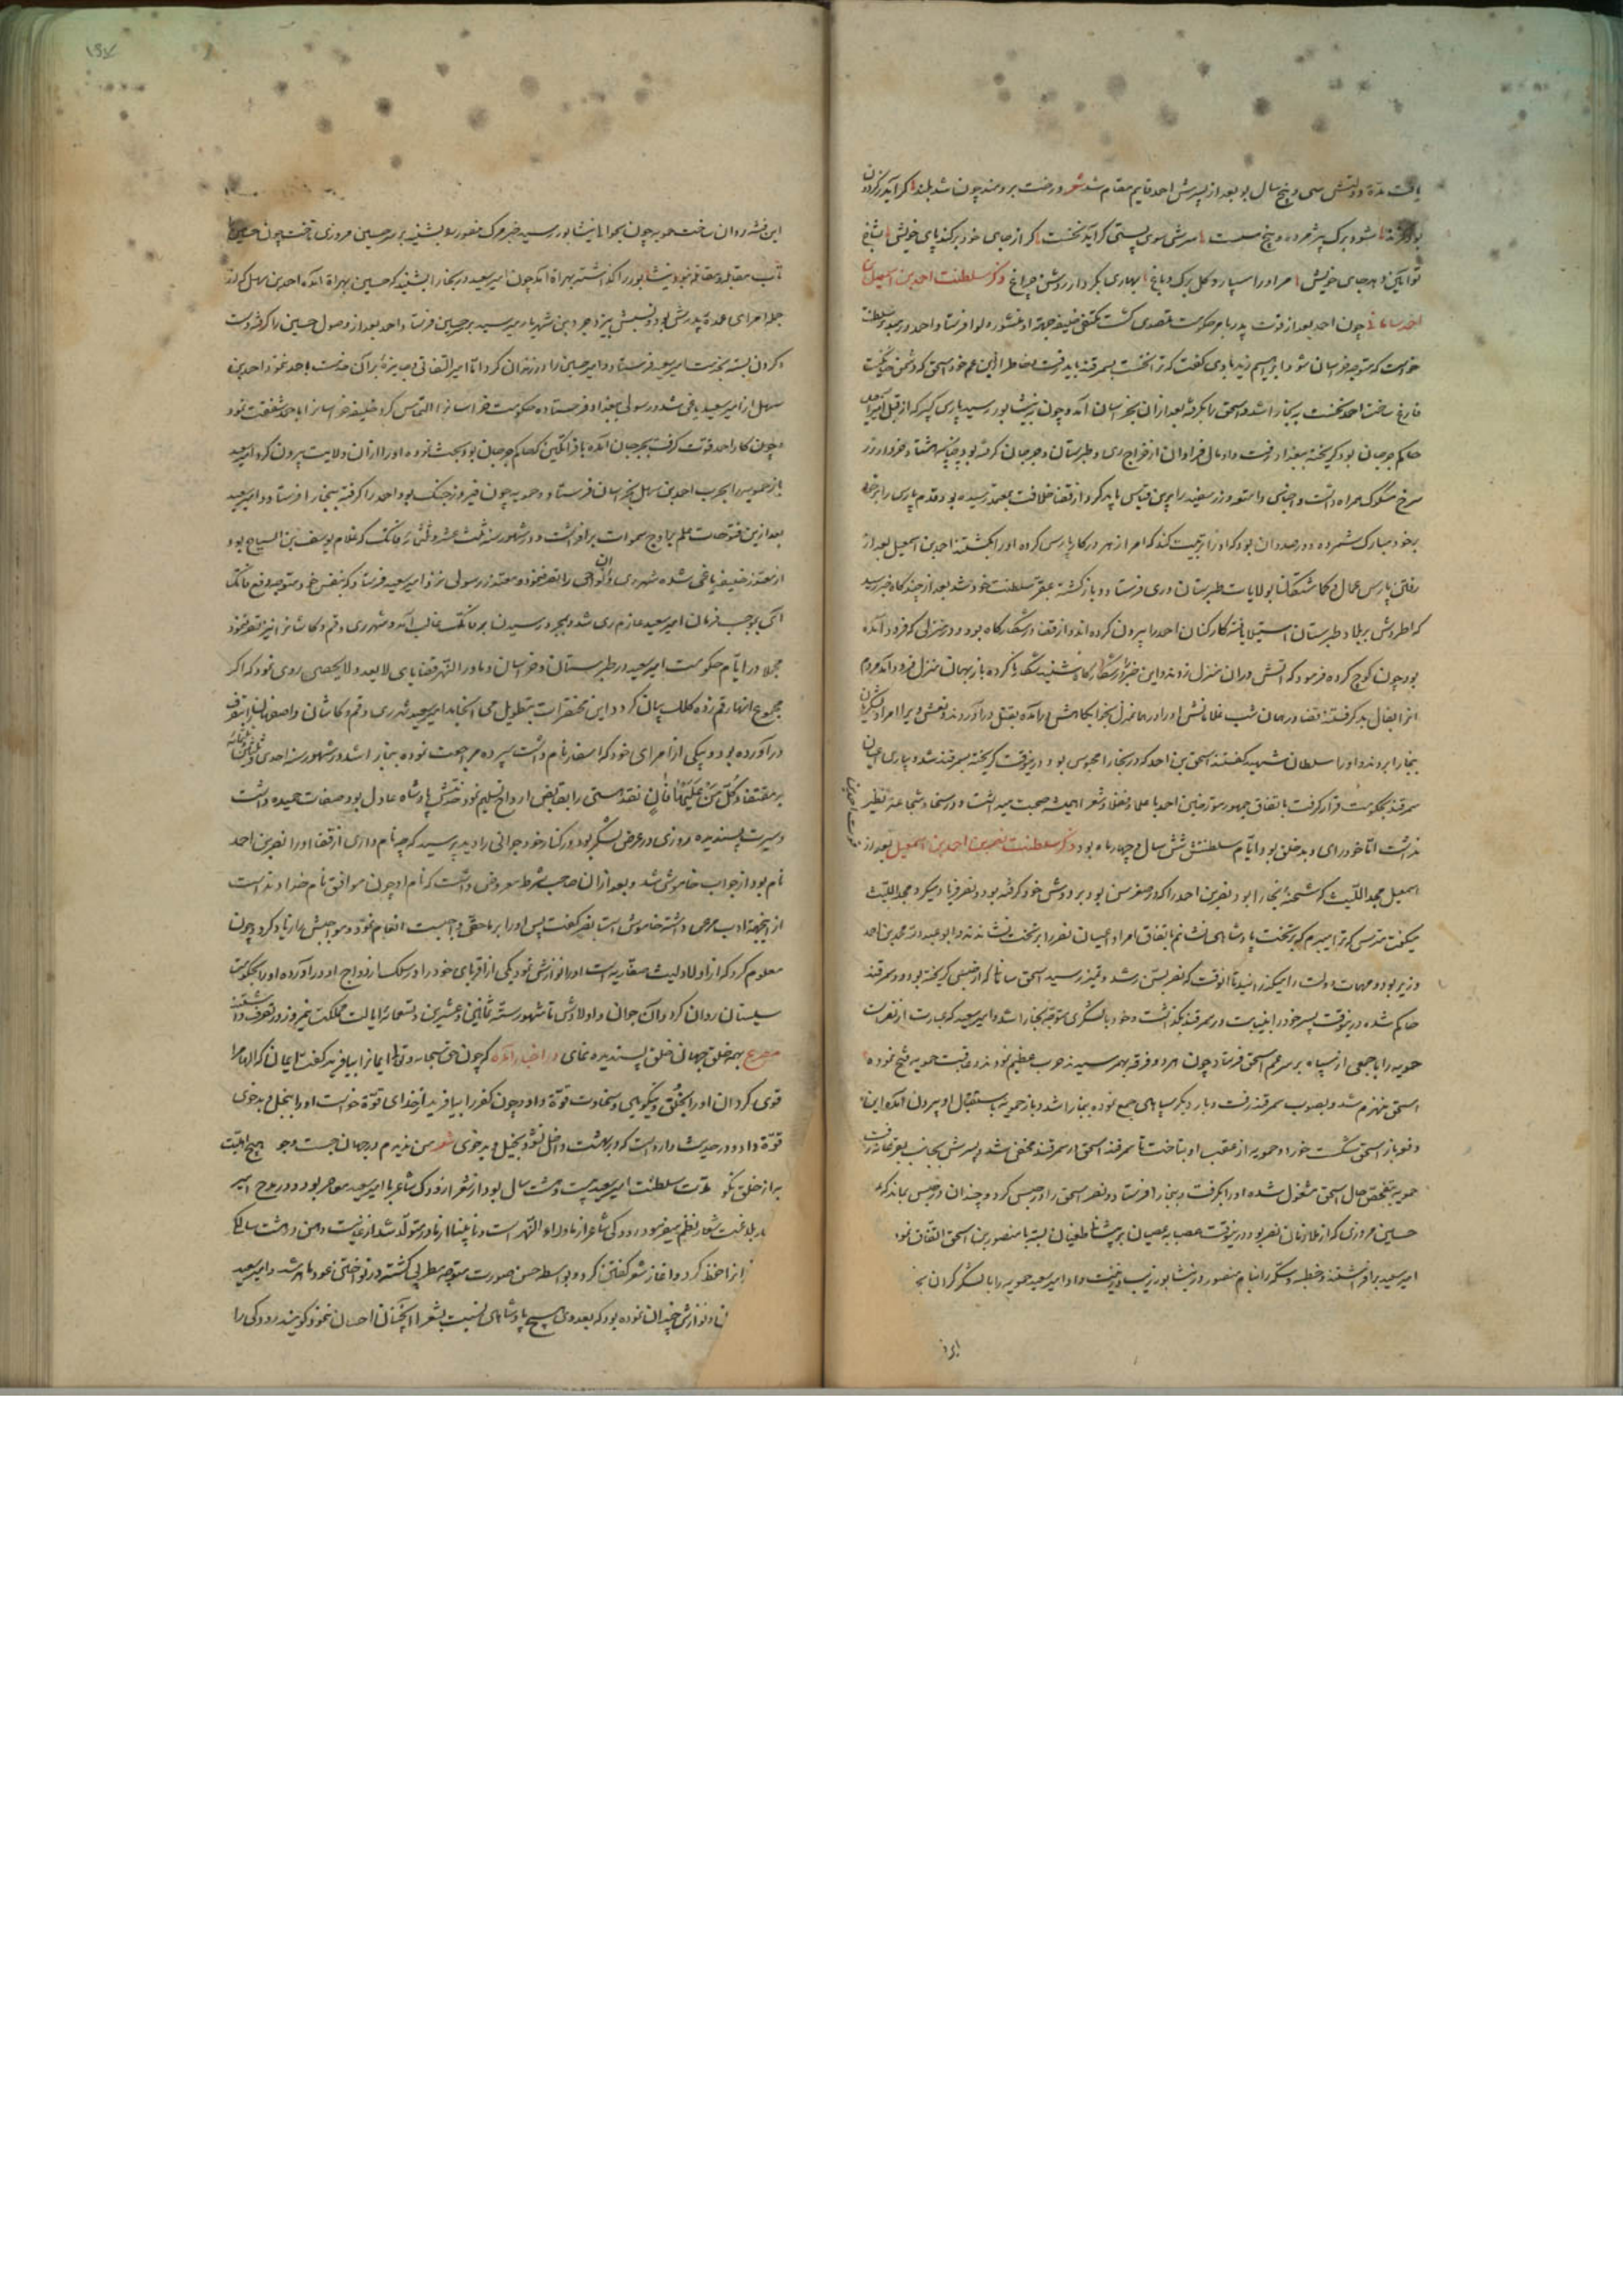 یافت مدة دولتش سی و پنج سال بود بعد از پسرش احمد قایم مقام شد شعر درخت برومند چون شد بلند کر آید ز کردون
شود برک پژمرده و بیخ سست سرش سوی پستی کراید نخست کر از جای خود برکند پای خویش بشاخ
نو آیین دهد جای خویش مر او را سپارد کل برک و باغ بهاری بکردار روشن چراغ ذکر سلطنت احمد بن اسمعیل بن
احمد سامانی چون احمد بعد از فوت پدر بامر حکومت متصدی کشت مکتفی خلیفه جهة او منشور و لوا فرستاد و احمد
خواست که متوجه خراسان شود ابراهیم زید با وی کفت که ترا نخست بسمرقند باید رفت و خاطر از این عم خود اسحق که دشمن
فارغ ساخت احمد نخست ببخارا شد و اسحق را بکرفته بعد از آن بخراسان آمد و چون بنیشابور رسید پارس کبیر که از قبل
حاکم جرجان بود کریخته ببغداد رفت و او مال فراوان از خراج ری و طبرستان و جرجان کرفته بود چنانچه هشتاد خروار زر
سرخ مسکوک همراه داشت و اجناس و امتعه و زر سفید را برین قیاس باید کرد و از قضا خلافت بمقتدر رسیده بود مقدم پارس را بر خود
بر خود مبارک شمرده و در صدد آن بود که او را تربیت کند که امرا از بهر در کار پارس کرده او را بکشتند احمد بن اسمعیل بعد از
رفتن پارس عمال و کماشتکان بولایات طبرستان و ری فرستاد و باز کشته بمقر سلطنت خود شد بعد از چند کاه خبر رسید
که اطروش بر بلاد طبرستان استیلا یافته کارکنان احمد را بیرون کرده اند و از قضا در شکارکاه بود و در منزلی که فرود آمده
بود چون کوچ کرده فرمود که آتش در آن منزل زدند و این خبر در شکارکاه شنید شکار ناکرده باز بهمان منزل فرود آمد مردم
انرا بفال بد کرفتند قضا در همان شب غلامانش او را در همان منزل بخوابکاهش در آمده بقتل در آوردند و نعش ویرا امرا و لشکریان
ببخارا بردند و او را سلطان شهید کفتند اسحق بن احمد که در بخارا محبوس بود در ینوقت کریخته بسمرقند شد و بیاری اعیان
سمرقند بحکومت قرار کرفت باتفاق جمهور مورخین احمد با علما و فضلا و شعرا همیشه صحبت میداشت و در سخا و شجاعت نظیر
نداشت اما خود رای و بد خلق بود و ایام سلطنتش شش سال و چهار ماه بود ذکر سلطنت نصر بن احمد بن اسمعیل بعد از
اسمعیل محمد اللیث که شحنهٔ بخارا بود نصر بن احمد را که در صغر سن بود بر دوش خود کرفته بود و نصر فریاد میکرد محمد اللیث
میکفت مترس که ترا میبرم که بر تخت پادشاهی نشانم باتفاق امرا و اعیان نصر را بر تخت نشاندند و ابو عبدالله محمد بن احمد
وزیر بود و مهمات دولت را میکذرانید تا انوقت که نصر بسن رشد و تمیز رسید اسحق سامانی که از حبس کریخته بود و در سمرقند
حاکم شده در ینوقت پسر خود را بنیابت در سمرقند کذاشت و خود با لشکری متوجه بخارا شد و امیر سعید که عبارت از نصر است
حمویه را با جمعی از سپاه بر سر عم اسحق فرستاد چون هر دو فرقه بهم رسیدند حرب عظیم نمودند و عاقبت حمویه فتح نموده
اسحق منهزم شد و بصوب سمرقند رفت و بار دیکر سپاهی جمع نموده ببخارا شد و باز حمویه باستقبال او بیرون آمده این
دفعه باز اسحق شکست خورد و حمویه از عقب او بتاخت تا سمرقند اسحق در سمرقند مخفی شد و پسرش بجانب بفرغانه رفت
حمویه بتفحص حال اسحق مشغول شده او را بکرفت و ببخارا فرستاد و نصر اسحق را در حبس کرد و چندان در حبس بماند که
حسین مروزی که از ملازمان نصر بود در ینوقت عصابه عصیان بر پیشانی طغیان بسته با منصور بن اسحق اتفاق نمود
امیر سعید بر افراشتند و خطبه و سکه را بنام منصور در نیشابور زیب و زینت داد و امیر سعید حمویه را با لشکر کران
این فتنه روان ساخت حمویه چون بحوالی نیشابور رسید خبر مرک منصور بشنید بر سر حسین مروزی تاخت چون حسین
تاب مقابله و مقاتله نبود نیشابور را کذاشته بهراة آمد چون امیر سعید در بخارا بشنید که حسین بهراة آمده احمد بن سهل که از
جمله امرای عمدهٔ پدرش بود و نسبش بیزدجرد بن شهریار میرسید بر حسین فرستاد و احمد بعد از وصول حسین را کرفته دست
و کردن بسته بخدمت امیر سعید فرستاد و امیر حسین را در زندان کرد اما امیر التفاتی و جایزه برآن خدمت باحمد ننمود احمد بن
سهل از امیر سعید یاغی شد و رسولی ببغداد فرستاده حکومت خراسان را التماس کرد خلیفه خراسان را با احمد شفقت نمود
و چون کار احمد قوت کرفت بجرجان آمده با قراتکین که حاکم جرجان بود بحث نموده او را از آن ولایت بیرون کرد امیر سعید
باز حمویه را بحرب احمد بن سهل بخراسان فرستاد و حمویه چون فیروز جنک بود احمد را کرفته ببخارا فرستاد و امیر سعید
بعد ازین فتوحات علم بر اوج سموات برافراشت و در شهور سنه ثلث عشر و ثلثمائه فاتک که غلام یوسف بن السیاج بود
از مقتدر خلیفه یاغی شده شهر ری و آن نواحی را بتصرف نمود و مقتدر رسولی نزد امیر سعید فرستاد که بنفس خود متوجه دفع فاتک
آی بموجب فرمان امیر سعید عازم ری شد و بمجرد رسیدن بر فاتک غالب آمد و شهر ری و قم و کاشان را نیز تصرف نمود
مجملا در ایام حکومت امیر سعید در طبرستان و خراسان و ماوراء النهر قضایای لا یعد و لا یحصی روی نمود که اکر
مجموع انها رقم زده کلک بیان کردد این مختصرات بتطویل می انجامد امیر سعید شهر ری و قم و کاشان و اصفهان را بتصرف
در آورده بود و بیکی از امرای خود که اسفار نام داشت سپرده مراجعت نموده ببخارا شد و در شهور سنه احدی و ثلثین و ثلثمائه
بر مقتضاء کل من علیها فان نقد هستی را بقابض ارواح تسلیم نمود و خدش پادشاه عادل بود و صفات حمیده داشت
و سیرت پسندیده روزی در عرض لشکر بود در کنار خود جوانی را دید پرسید که چه نام داری از قضا او را نصر بن احمد
نام بود از جواب خاموش شد و بعد از آن صاحب شرط معروض داشت که نام او چون موافق نام خداوند است
از اینجهة ادب مرعی داشته خاموش است نصر کفت پس او را بر ما حقی واجبست انعام نمود و مواجبش را زیاد کرد و چون
معلوم کرد که از اولاد لیث صفاریه است او را نوازش نمود و یکی از اقربای خود را در سلک ازدواج او در آورده او را بحکومت
سیستان روان کرد و آن جوان و اولادش تا شهور سنه ثمانین و عشرین و تسعمائه ایالت مملکت نیمروز در تصرف داشتند
مصرع بهمه خلق جهان خلق پسندیده نمای در اخبار آمده که چون حق سبحانه و تعالی ایمان را بیافرید کفت ایمان که الها مرا
قوی کردان او را بخلق و نیکویی و سخاوت قوة داد و چون کفر را بیافرید از خدای قوة خواست او را ببخل و بدخوی
قوة داد و در حدیث وارد است که در بهشت داخل نشود بخیل و بدخوی شعر من ندیدم در جهان جست و جو هیچ اهلیت
به از خلق نکو مدت سلطنت امیر سعید بیست و هشت سال بود از شعرا رودکی شاعر با امیر سعید معاصر بود و در مدح امیر
بلاغت شعار نظم میفرمود رودکی شاعر از ماوراء النهر است و نابینا از مادر متولد شد از غایت ذهن در هشت سالکی
انرا حفظ کرد و آغاز شعر کفتن کرد و بواسطه حسن صورت متوجه مطربی کشته در نواختن عود ماهر شد و امیر سعید
و نوازش چندان نموده بود که بعد وی هیچ پادشاهی نسبت بشعرا آنچنان احسان ننمود و کویند رودکی را